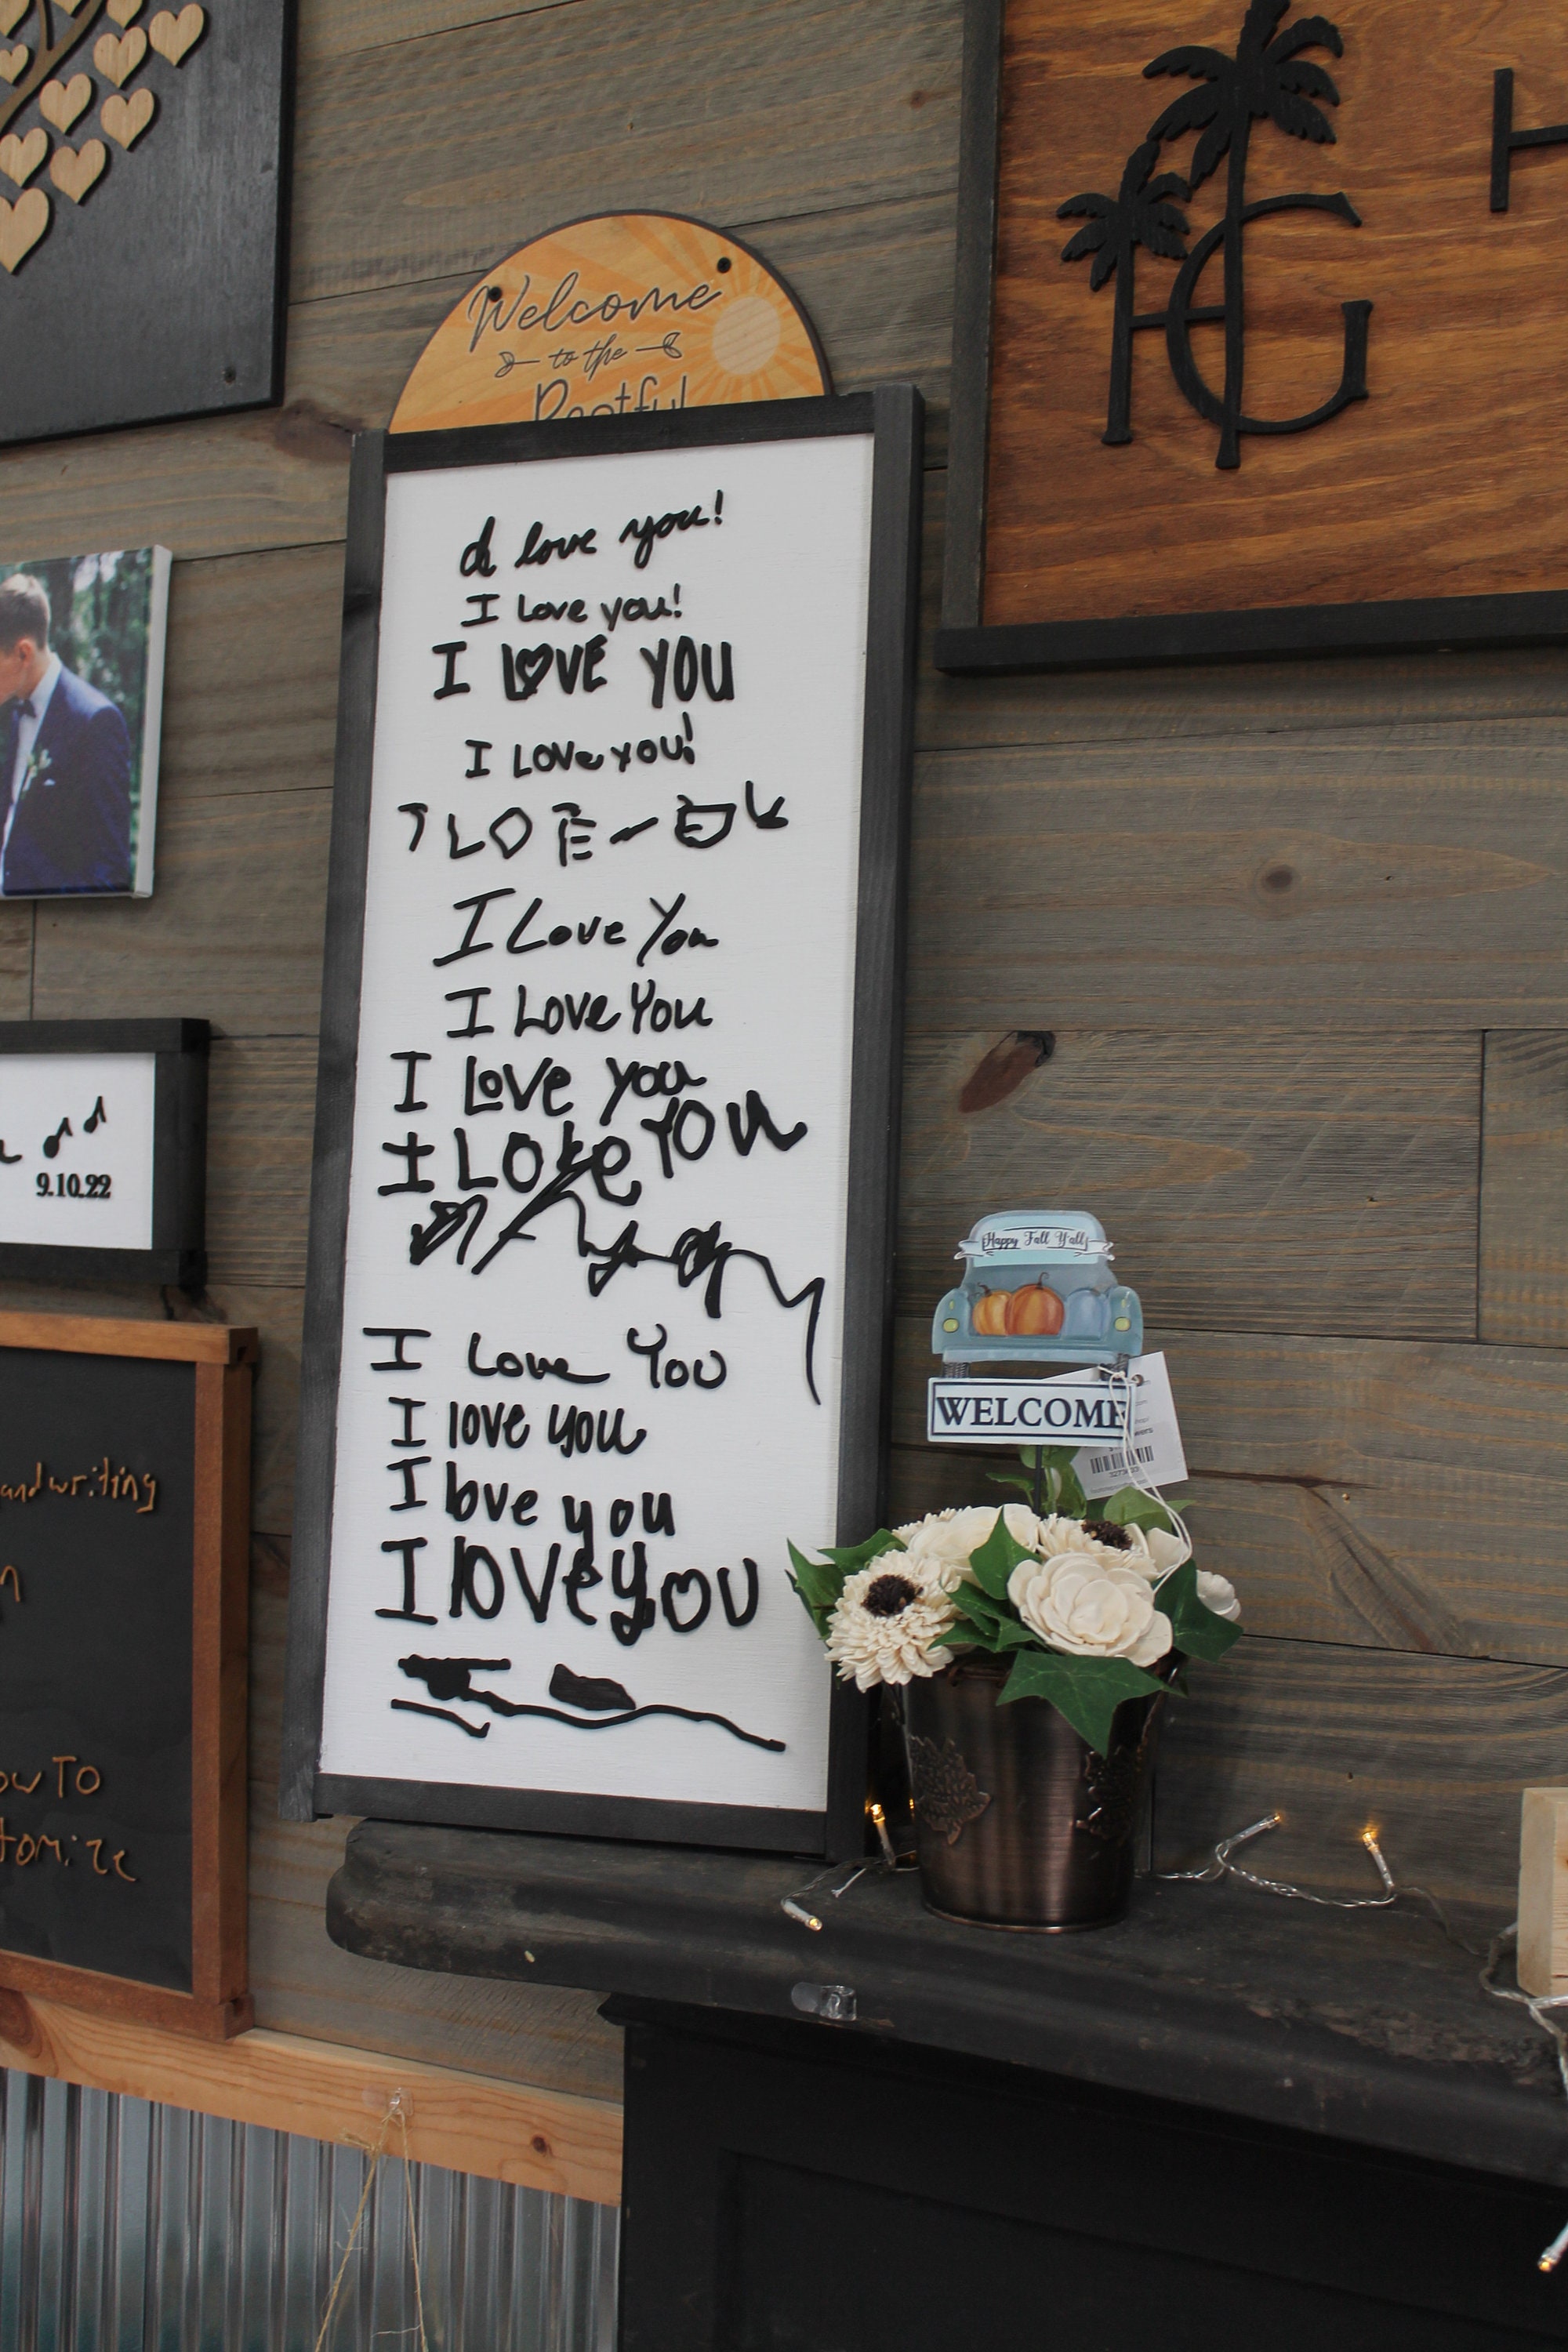 Welcome
to the
Restful
I love you!
I Love you!
I LOVE YOU
I LOVe you!
I Love You
I Love You
I Love you
I LOVe YOU
I Love You
I love you
I love you
I loveyou
HG
H
9.10.22
andwriting
ow TO
tomize
Happy Fall Y'all
WELCOME